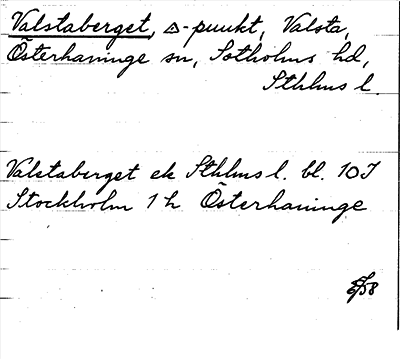 Valstaberget, △-punkt, Valsta,
Österhaninge sn, Sotholms hd,
Sthlms l.
Valstaberget ek Sthlms l. bl. 10J
Stockholm 1 h Österhaninge
58